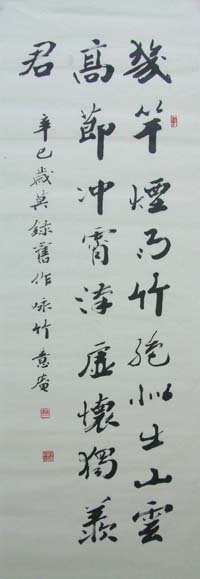 幾竿煙雨竹絕似出山雲
高節冲霄漢虛懷獨羨
君
辛巳歲莫錄舊作咏竹意庵